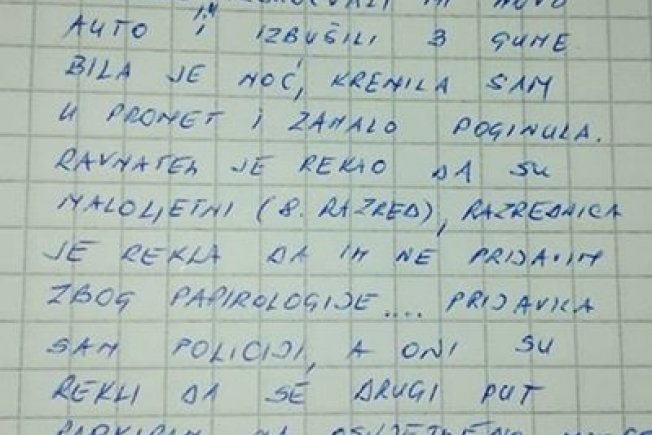 MI NOVO
AUTO I IM IZBUŠILI 3 GUME
BILA JE NOĆ, KRENILA SAM
U PROMET I ZAMALO POGINULA.
RAVNATELJ JE REKAO DA SU
MALOLJETNI (8. RAZRED), RAZREDNICA
JE REKLA DA IH NE PRIJAVIM
ZBOG PAPIROLOGIJE.... PRIJAVILA
SAM POLICIJI, A ONI SU
REKLI DA SE DRUGI PUT
PARKIRAM NA OSVJETLJENO